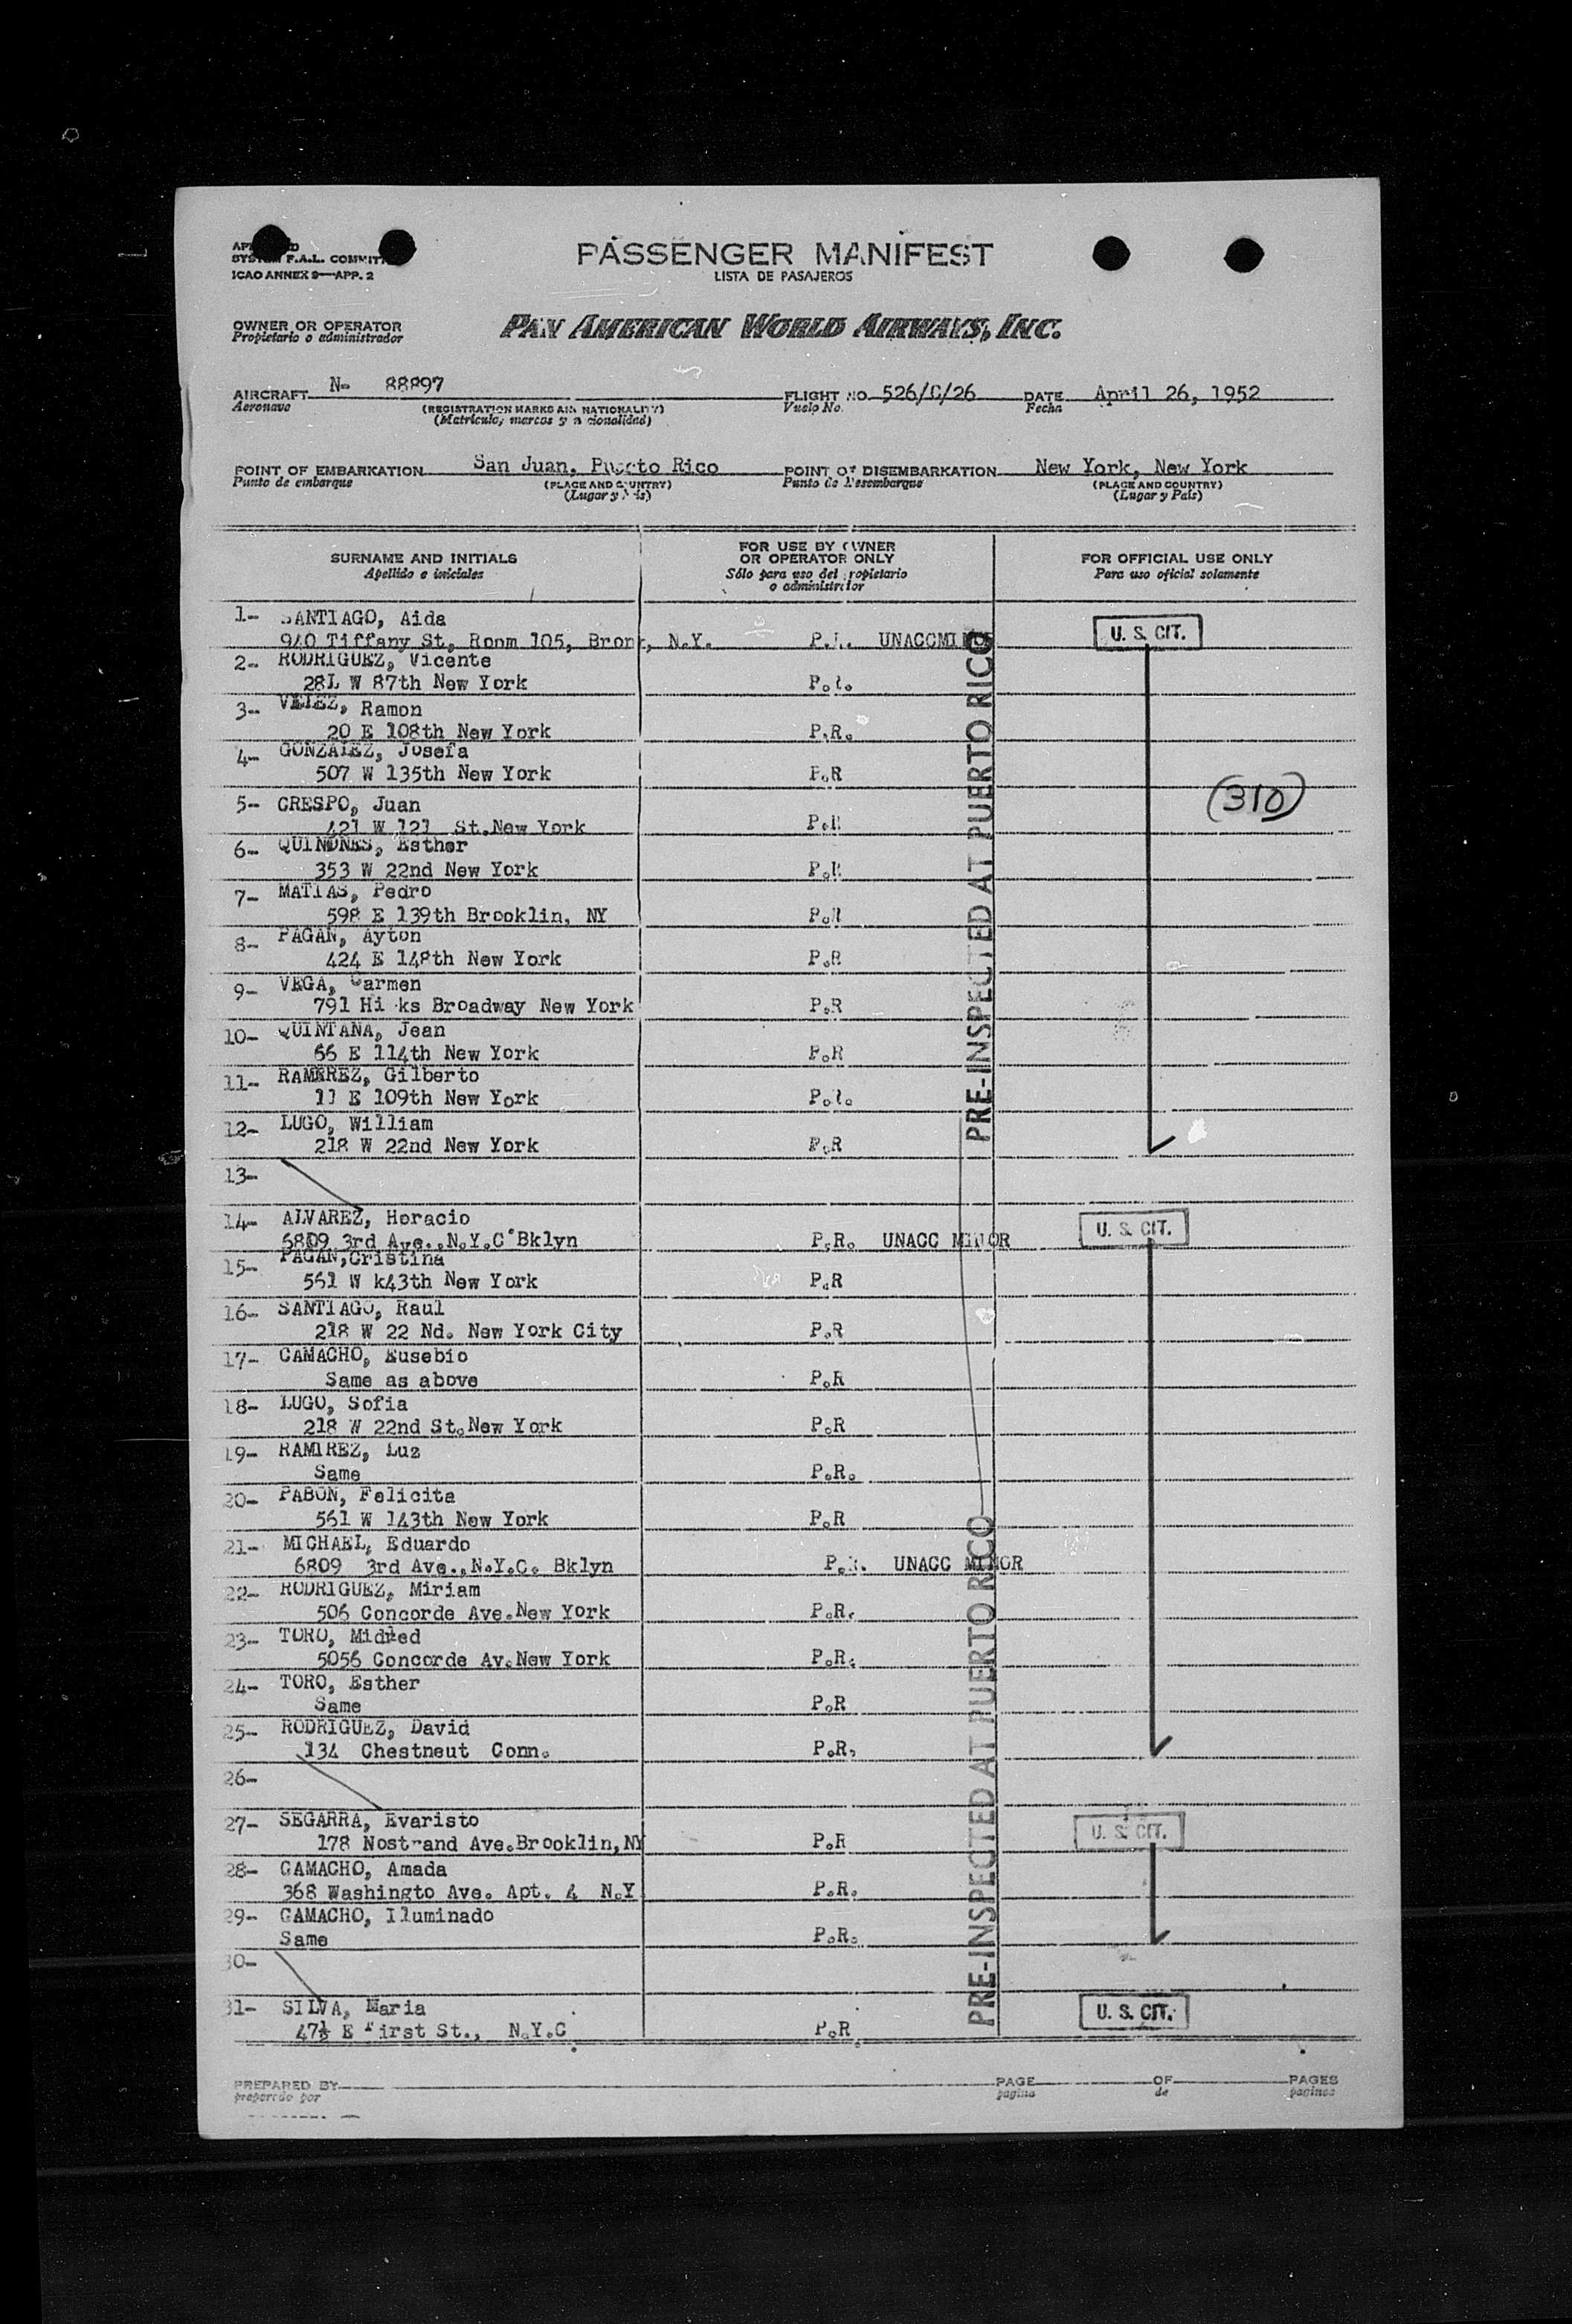 PASSENGER MANIFEST
LISTA DE PASAJEROS
SYSTEM F.A.L. COMMITT
ICAO ANNEX 9—APP. 2
OWNER OR OPERATOR
Propietario o administrador
PAN AMERICAN WORLD AIRWAYS, INC.
AIRCRAFT N- 88897 FLIGHT NO. 526/C/26 DATE April 26, 1952
Aeronave (REGISTRATION MARKS AND NATIONALITY) Vuelo No. Fecha
(Matriculo, marcas y nacionalidad)
POINT OF EMBARKATION San Juan, Puerto Rico POINT OF DISEMBARKATION New York, New York
Punto de embarque (PLACE AND COUNTRY) Punto de Desembarque (PLACE AND COUNTRY)
(Lugar y País) (Lugar y País)
SURNAME AND INITIALS
Apellido e iniciales
FOR USE BY OWNER
OR OPERATOR ONLY
Sólo para uso del propietario
o administrador
FOR OFFICIAL USE ONLY
Para uso oficial solamente
1- SANTIAGO, Aida
940 Tiffany St, Room 105, Bronx, N.Y. P.R. UNACCMINOR U. S. CIT.
2- RODRIGUEZ, Vicente
28L W 87th New York P.R.
3- VELEZ, Ramon
20 E 108th New York P.R.
4- GONZALEZ, Josefa
507 W 135th New York P.R
(310)
5- CRESPO, Juan
421 W 121 St.New York P.R
6- QUINONES, Esther
353 W 22nd New York P.R
7- MATIAS, Pedro
598 E 139th Brooklin, NY P.R
8- PAGAN, Ayton
424 E 148th New York P.R
9- VEGA, Carmen
791 Hi ks Broadway New York P.R
10- QUINTANA, Jean
66 E 114th New York P.R
11- RAMEREZ, Gilberto
11 E 109th New York P.R.
12- LUGO, William
218 W 22nd New York P.R
13-
14- ALVAREZ, Horacio
6809 3rd Ave.,N.Y.C Bklyn P.R. UNACC MINOR U. S. CIT.
15- PAGAN,Cristina
561 W k43th New York P.R
16- SANTIAGO, Raul
218 W 22 Nd. New York City P.R
17- CAMACHO, Eusebio
Same as above P.R
18- LUGO, Sofia
218 W 22nd St.New York P.R
19- RAMIREZ, Luz
Same P.R.
20- PABON, Felicita
561 W 143th New York P.R
21- MICHAEL, Eduardo
6809 3rd Ave.,N.Y.C. Bklyn P.R. UNACC MINOR
22- RODRIGUEZ, Miriam
506 Concorde Ave.New York P.R.
23- TORO, Midred
5056 Concorde Av.New York P.R.
24- TORO, Esther
Same P.R
25- RODRIGUEZ, David
134 Chestneut Conn. P.R.
26-
27- SEGARRA, Evaristo
178 Nostrand Ave.Brooklin,NY P.R U. S. CIT.
28- CAMACHO, Amada
368 Washingto Ave. Apt. 4 N.Y P.R.
29- CAMACHO, Iluminado
Same P.R.
30-
31- SILVA, Maria
47½ E First St., N.Y.C P.R U. S. CIT.
PRE-INSPECTED AT PUERTO RICO
PRE-INSPECTED AT PUERTO RICO
PREPARED BY PAGE OF PAGES
preparado por pagina de paginas